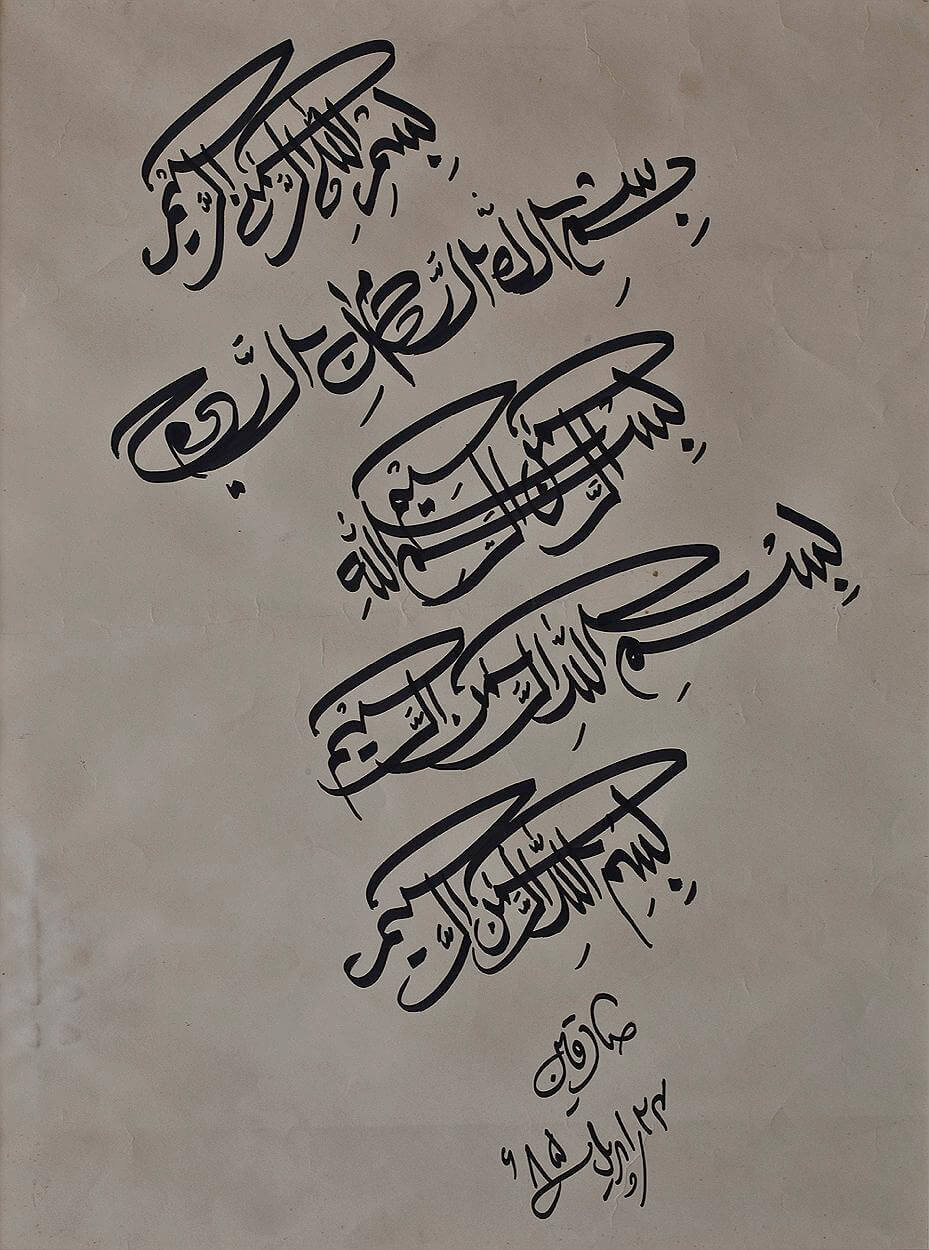 بسم الله الرحمن الرحيم
بسم الله الرحمان الرحيم
بسم الله الرحمن الرحيم
بسم الله الرحمن الرحيم
بسم الله الرحمن الرحيم
صادقین
۲۴؍ اپریل ۸۵ء